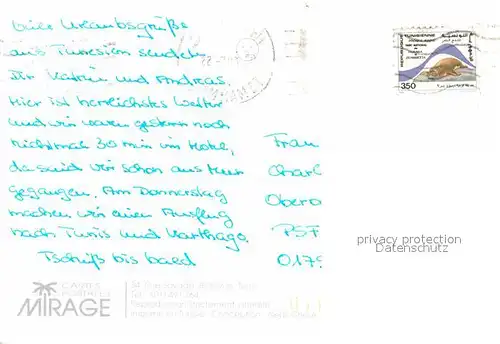 Liebe Urlaubsgrüße
aus Tunesien senden
Dir Katrin und Andreas.
Hier ist herrlichstes Wetter
und wir waren gestern noch
nichtmal 30 min im Hotel,
da sind wir schon ans Meer
gegangen. Am Donnerstag
machen wir einen Ausflug
nach Tunis und Karthago.
Tschüß bis bald
Frau
Charl
Obero
PSF
0179
REPUBLIQUE TUNISIENNE
350
privacy protection
Datenschutz
CARTES POSTALES
MIRAGE